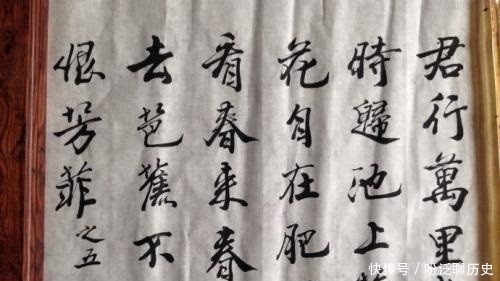 君行萬里
時歸池上
花自在肥
看春来春
去芭蕉不
恨芳菲
之五
快传号 / 吩泛聊历史